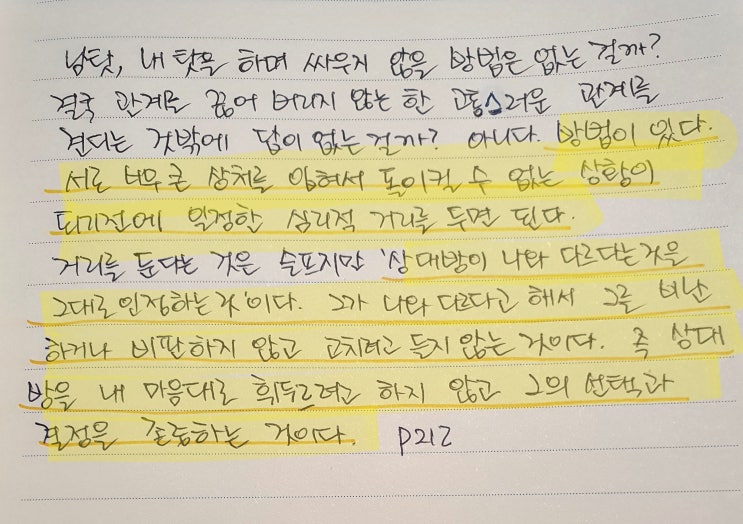 남탓, 내 탓을 하며 싸우지 않을 방법은 없는 걸까?
결국 관계를 끊어 버리지 않는 한 고통스러운 관계를
견디는 것밖에 답이 없는걸까? 아니다. 방법이 있다.
서로 너무 큰 상처를 입혀서 돌이킬 수 없는 상황이
되기전에 일정한 심리적 거리를 두면 된다.
거리를 둔다는 것은 슬프지만 '상대방이 나와 다르다는 것을
그대로 인정하는 것'이다. 그가 나와 다르다고 해서 그를 비난
하거나 비판하지 않고 고치려고 들지 않는 것이다. 즉 상대
방을 내 마음대로 휘두르려고 하지 않고 그의 선택과
결정을 존중하는 것이다. P212